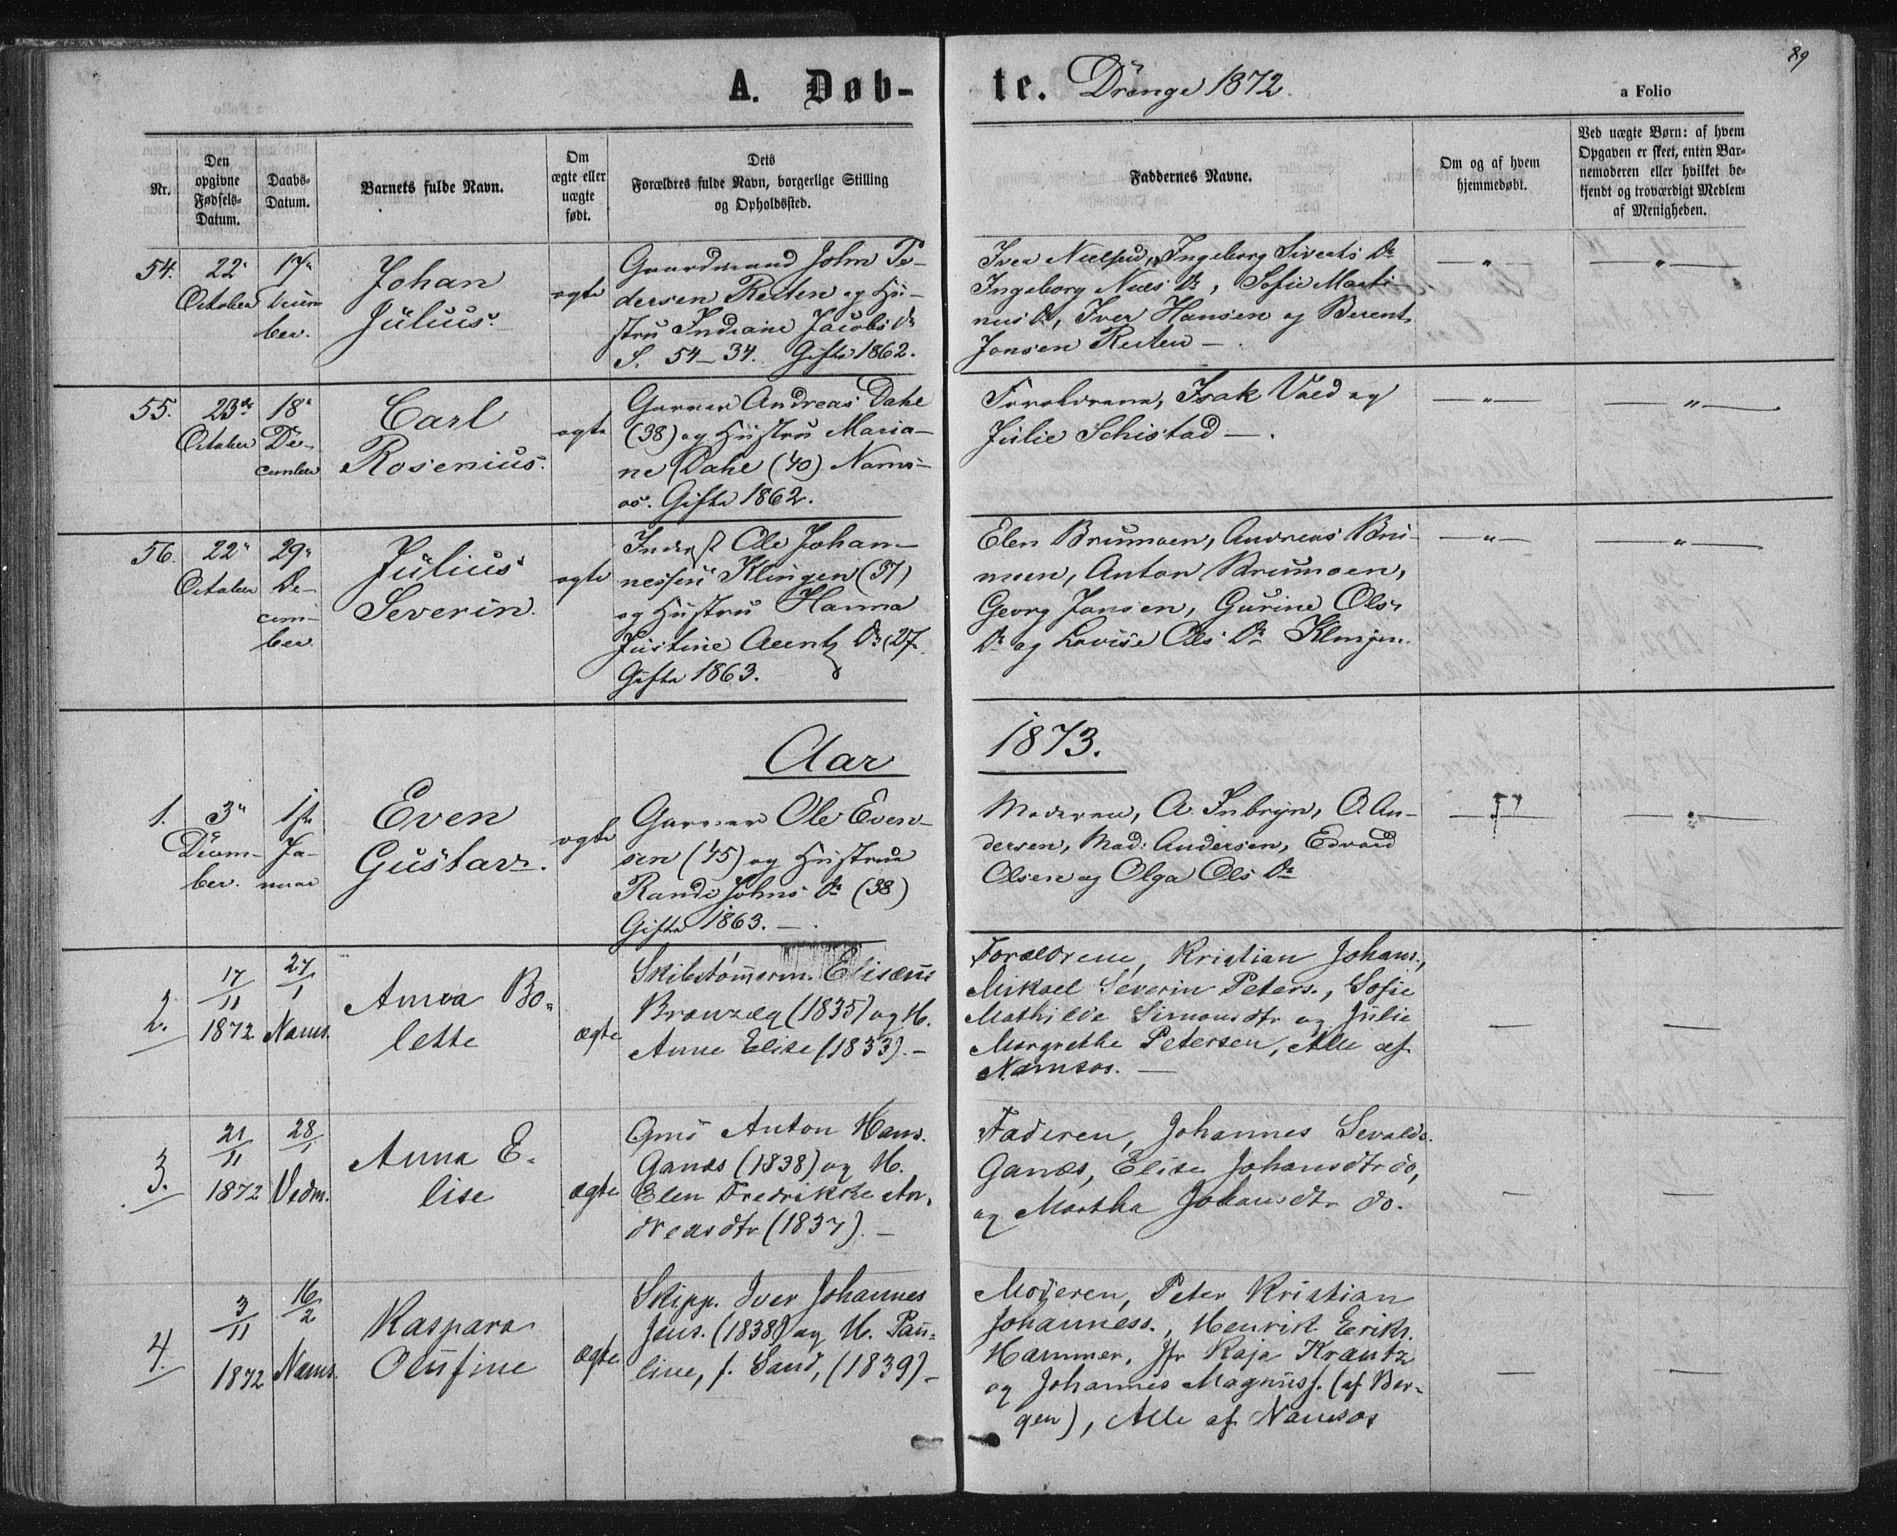 89
A. Døb-te. Drenge 1872.
a Folio
Nr.
Den opgivne Fødsels-Datum.
Daabs-Datum.
Barnets fulde Navn.
Om ægte eller uægte født.
Dets Forældres fulde Navn, borgerlige Stilling og Opholdssted.
Faddernes Navne.
Om og af hvem hjemmedøbt.
Ved uægte Børn: af hvem Opgaven er skeet, enten Barnemoderen eller hvilket bekjendt og troværdigt Medlem af Menigheden.
54.
22
October
17
Decem
ber.
Johan
Julius.
ægte
Gaardmand John Pe-
dersen Reiten og Hu-
stru Indiane Jacobs Dr
S. 54-34. Gifte 1862.
Iver Nielsen, Ingeborg Siverts Dr
Ingeborg Niels Dr, Sofie Marti
nus Dr, Iver Hansen og Berent
Jonsen Reiten —.
— " —
— " —
55.
23de
October
18
De-
cember
Carl
Rosenius.
ægte
Garver Andreas Dahl
(38) og Hustru Maria-
ne Dahl (40) Nams-
os. Gifte 1862.
Forældrene, Isak Vold og
Julie Schistad —.
— " —
— " —
56.
22
October
29
De-
cem-
ber
Julius
Severin.
ægte
Inderst Ole Johan-
nessen Klingen (37)
og Hustru Hanna
Justine Arentz Dr (27
Gifte 1863.
Elen Brumoen, Andreas Bru-
moen, Anton Brumoen,
Georg Jansen, Gurine Ols
Dr og Lovise Ols Dr Klingen.
— " —
— " —
Aar 1873.
1.
3
Decem-
ber.
1ste
Ja-
nuar
Even
Gustav.
ægte
Garver Ole Even-
sen (45) og Hustrue
Randi Johns Dr (38)
Gifte 1863. —.
Moderen, A. Inbryn, O. An-
dersen, Mad. Andersen, Edvard
Olsen og Olga Ols Dr
2.
17/11
1872
27/1
Nams.
Anna Bo-
lette
ægte
Skibstømmerm. Elisæus
Brandzæg (1835) og H.
Anne Elise (1833). —
Forældrene, Kristian Johans.,
Mikael Severin Peters., Sofie
Mathilde Simonsdtr og Julie
Margrethe Petersen, Alle af
Namsos. —
—
—
3.
21/11
1872
28/1
Vedm.
Anna E-
lise
ægte
Gms Anton Hans.
Ganæs (1838) og H.
Elen Fredrikke An-
dreasdtr (1837). —
Faderen, Johannes Sevalds.
Ganæs, Elise Johansdtr do,
og Martha Johansdtr do.
—
—
4.
3/11
1872
16/2
Nams.
Kaspara
Olufine
ægte
Skipp. Iver Johannes
Jens. (1838) og H. Pau-
line, f. Sand, (1839) —
Moderen, Peter Kristian
Johanness., Henrik Eriks.
Hammer, Jfr Kaja Krantz
og Johannes Magnuss. (af Ber-
gen), Alle af Namsos
—
—